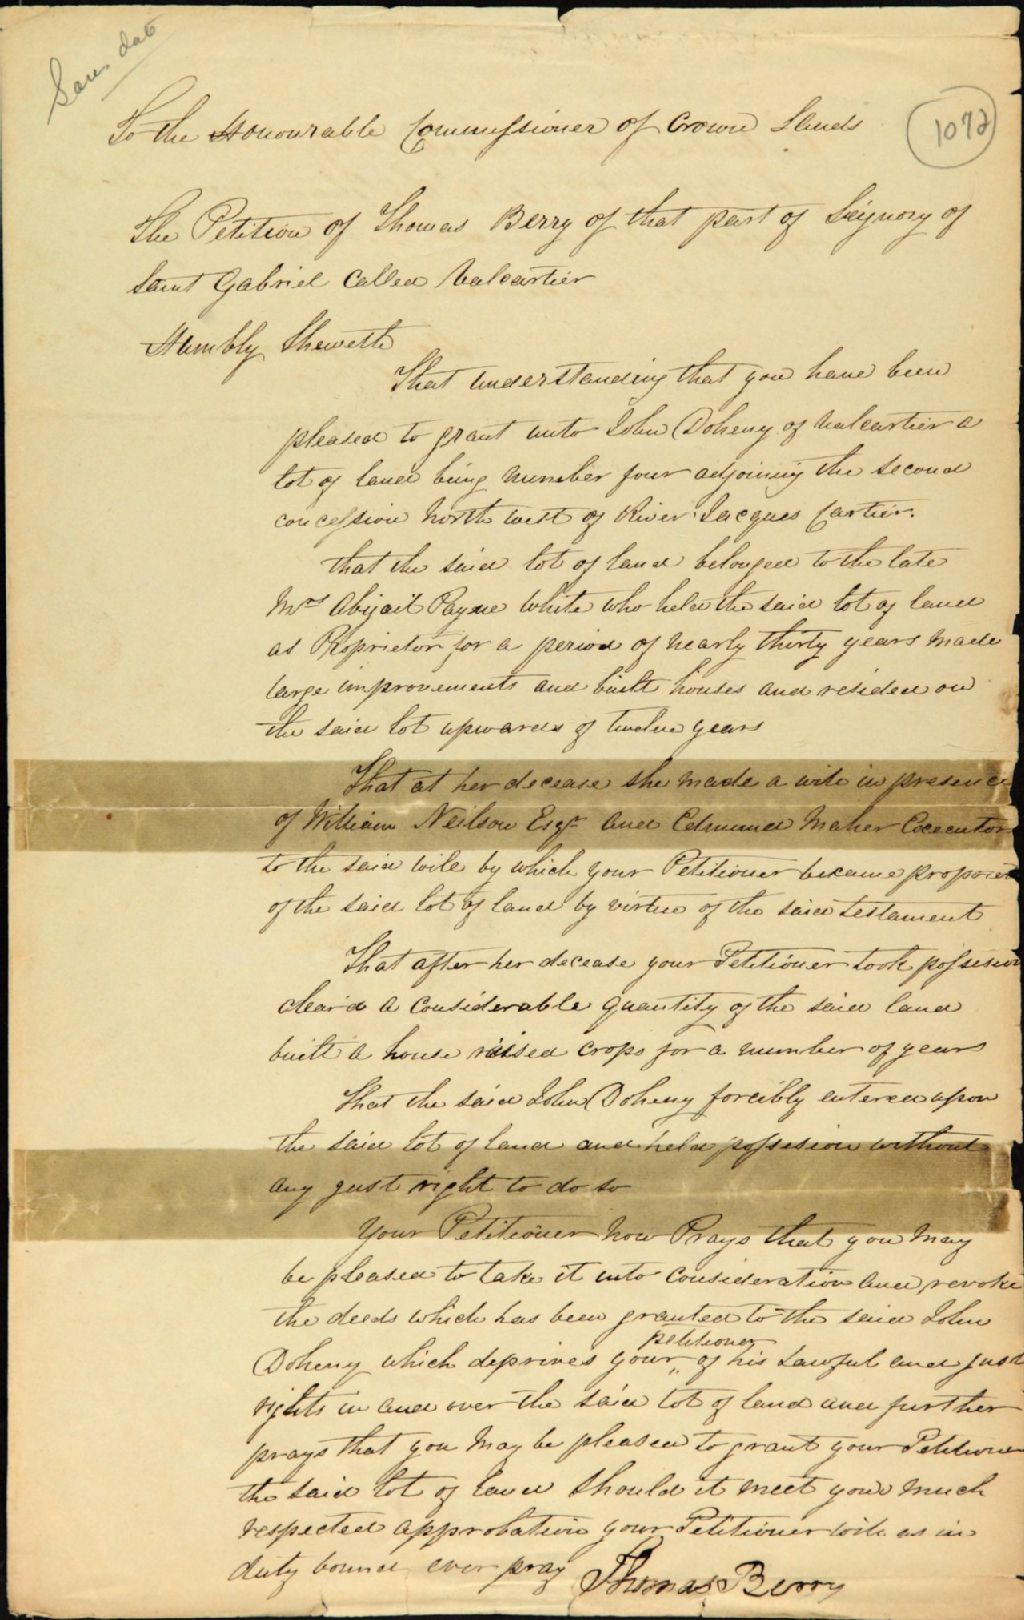 Sans date
1072
To the Honourable Commissioner of Crown Lands
The Petition of Thomas Berry of that part of Seignory of
Saint Gabriel Called Valcartier
Humbly Sheweth
That understanding that you have been
pleased to grant unto John Doheny of Valcartier a
lot of land being number four adjoining the second
concession North west of River Jacques Cartier.
that the said lot of land belonged to the late
Mrs Abijail Payne White who held the said lot of land
as Proprietor for a period of nearly thirty years made
large improvements and built houses and resided on
the said lot upwards of twelve years
That at her decease she made a will in presence
of William Neilson Esqr and Edmund Maher Executor
to the said will by which your Petitioner became propriet
of the said lot of land by virtue of the said testament
That after her decease your Petitioner took possession
clear'd a considerable quantity of the said land
built a house raised crops for a number of years
That the said John Doheny forcibly entered upon
the said lot of land and held possession without
any just right to do so
Your Petitioner now Prays that you may
be pleased to take it into consideration and revoke
the deeds which has been granted to the said John
petitioner
Doheny which deprives your " of his Lawful and just
rights in and over the said lot of land and further
prays that you may be pleased to grant your Petitioner
the said lot of land Should it meet your much
respected approbation your Petitioner will as in
duty bound ever pray
Thomas Berry